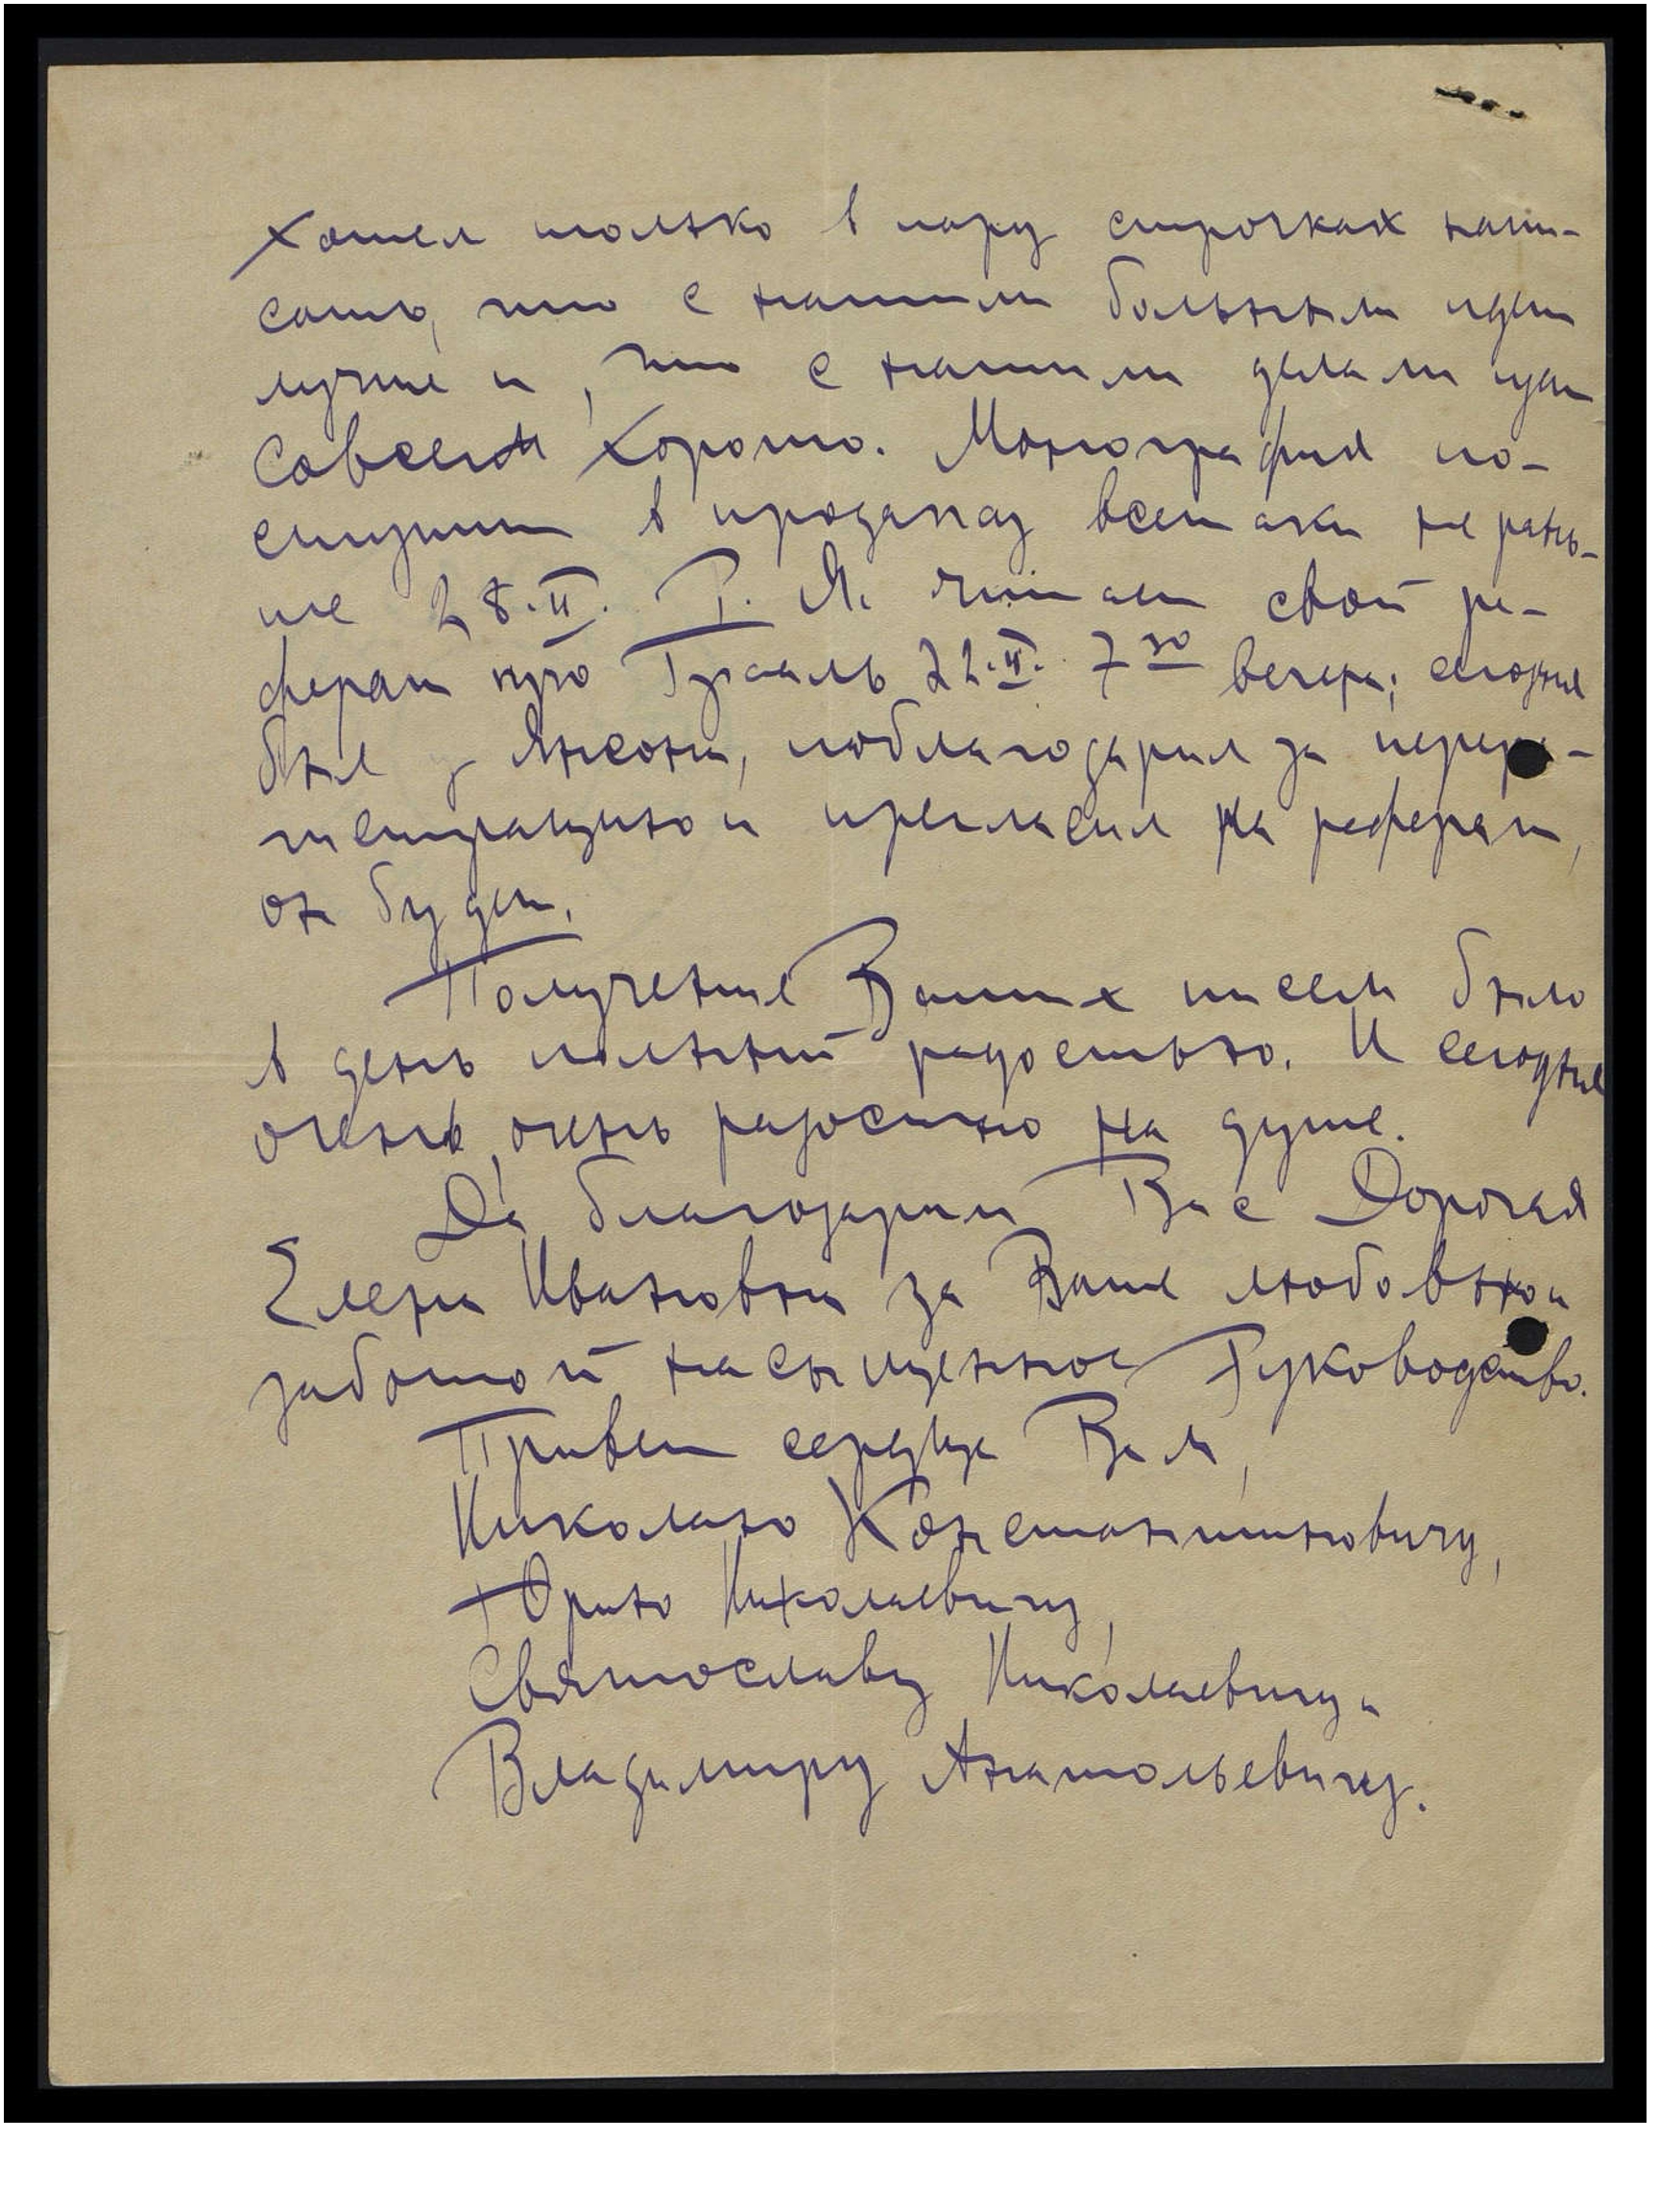 хотел только в пару строчках напи-
сать, что с нашим больным идет
лучше и, что с нашими делами идет
совсем хорошо. Монография по-
ступит в продажу всетаки не рань-
ше 28.II. Г. Я. читает свой ре-
ферат про Грааль 22.II. 7 30 вечера; сегодня
был у Янсона, поблагодарил за перере-
гистрацию и пригласил на реферат,
он будет.
Получение Ваших писем было
в день полный радостью. И сегодня
очень, очень радостно на душе.
Да благодарим Вас Дорогая
Елена Ивановна за Ваше любовью и
заботой насыщенное Руководство.
Привет сердца Вам,
Николаю Константиновичу,
Юрию Николаевичу,
Святославу Николаевичу и
Владимиру Анатольевичу.